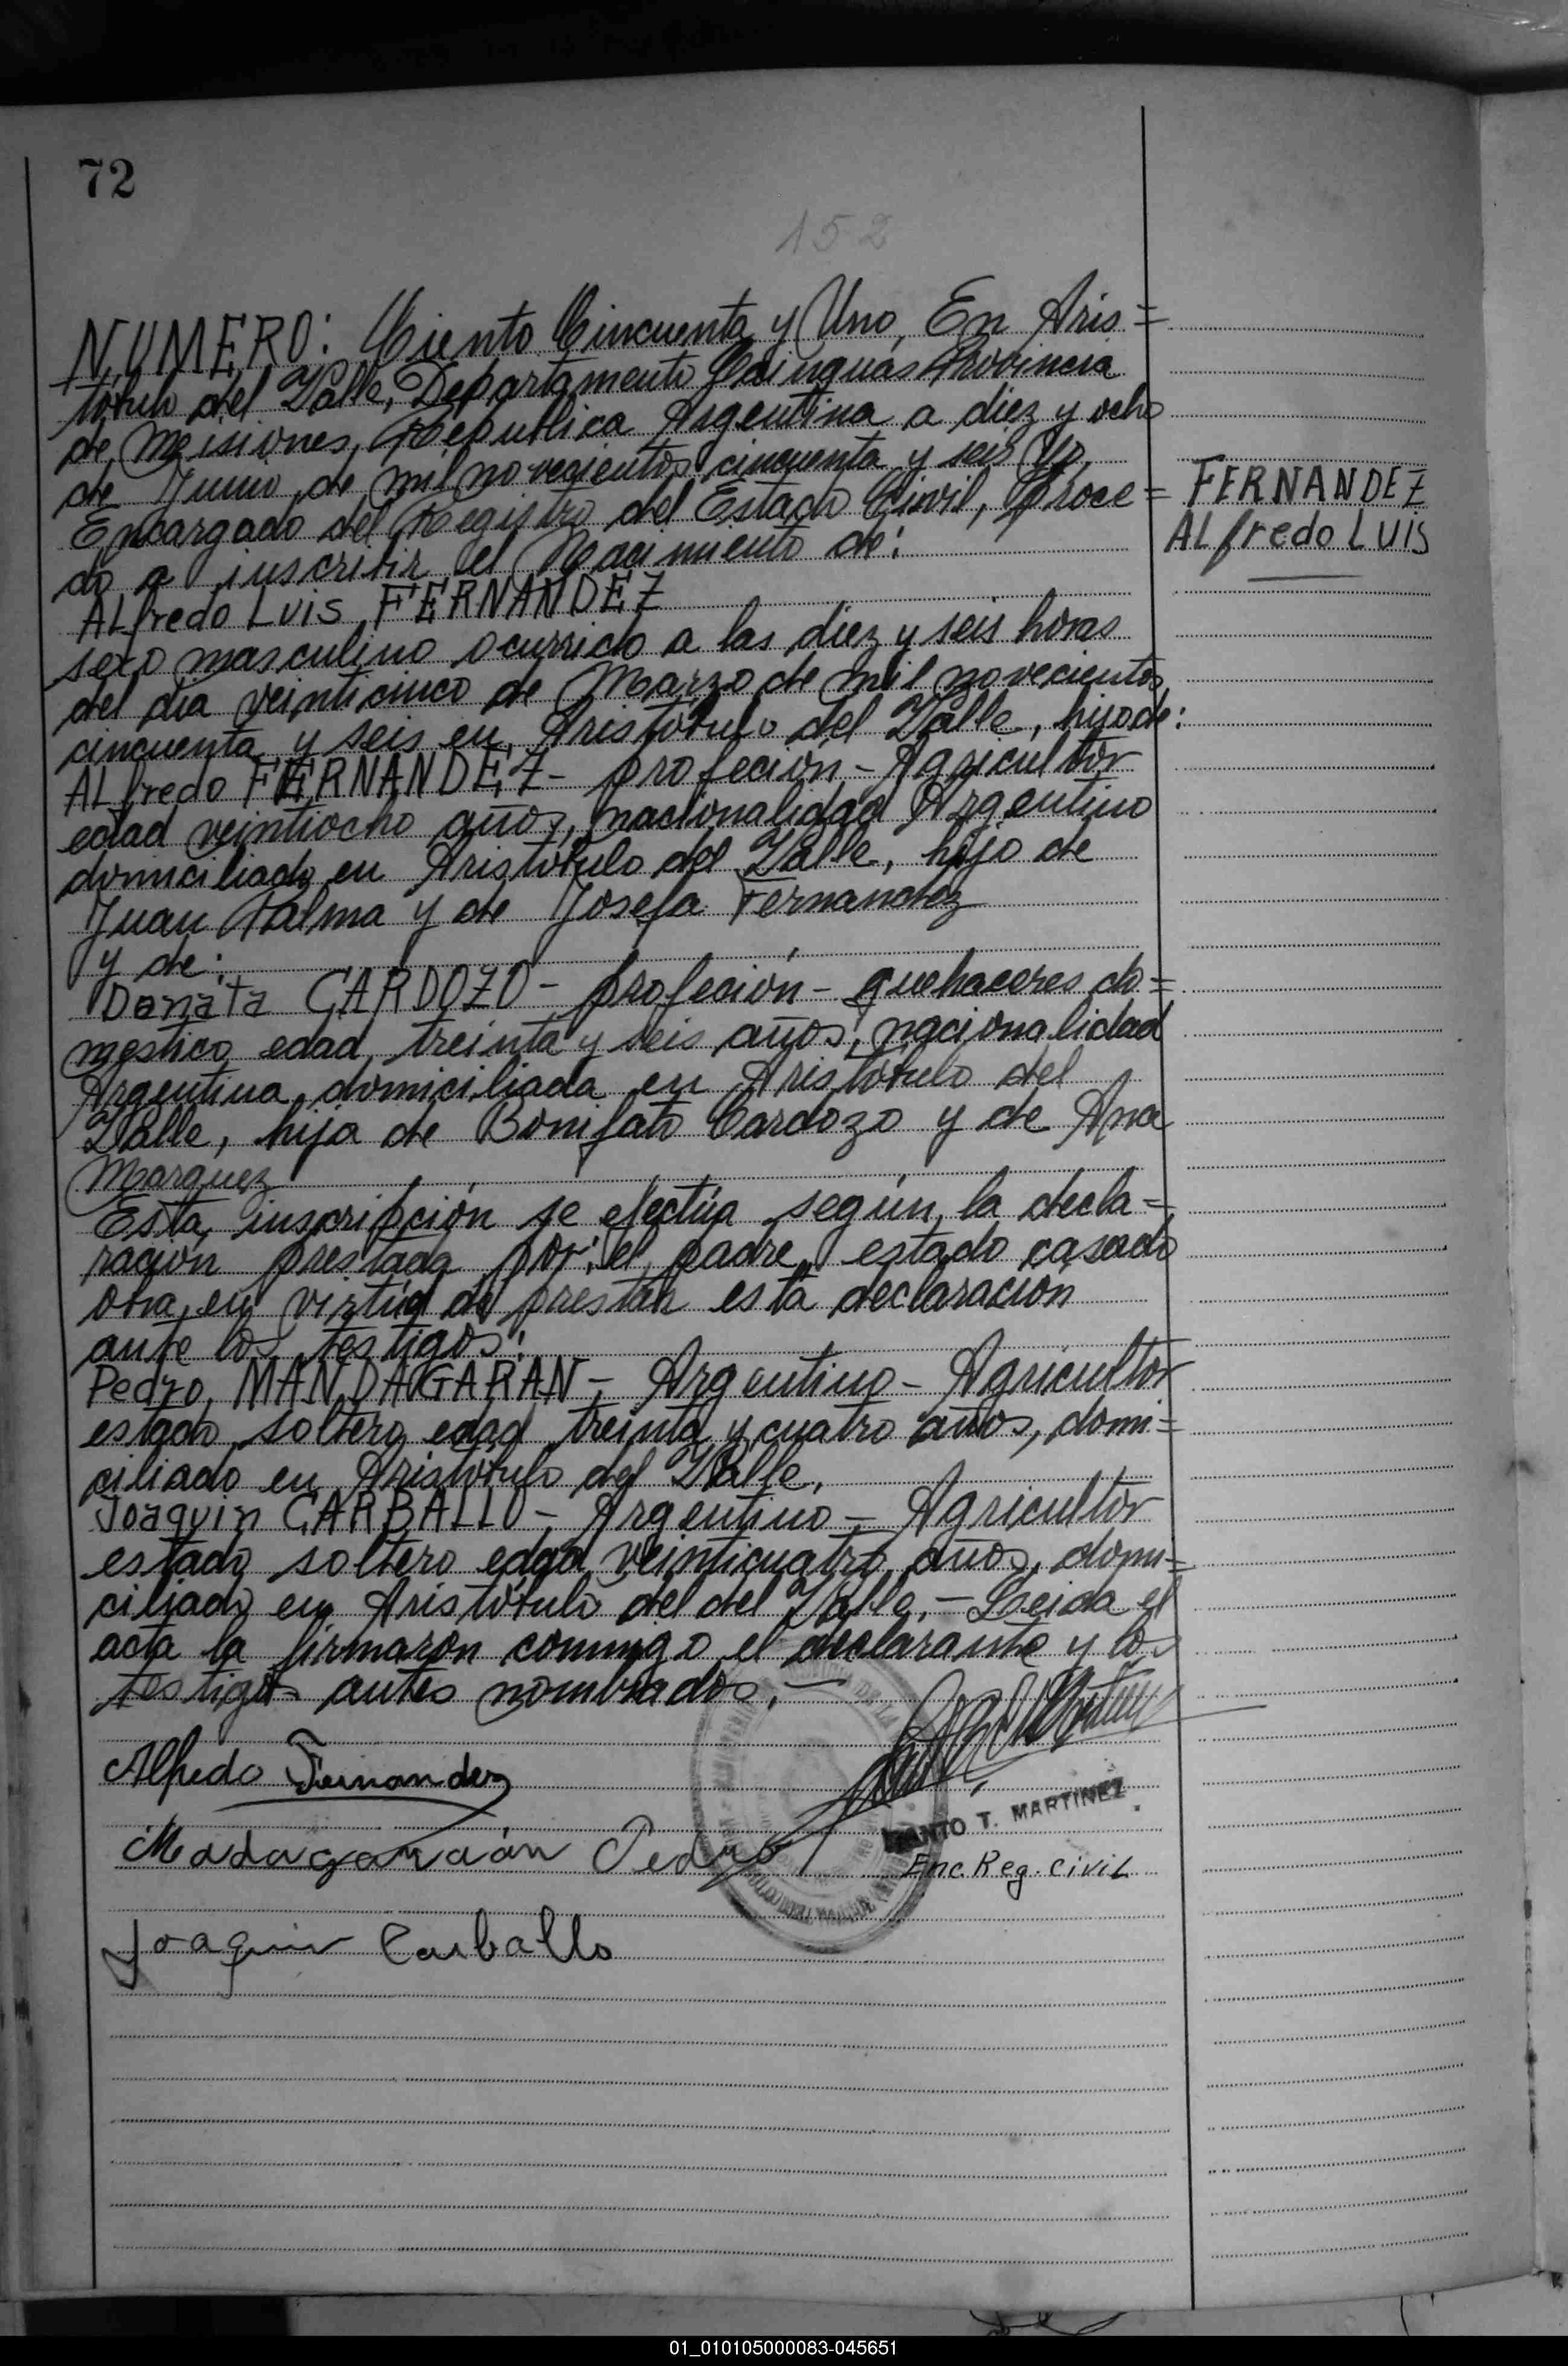 72
152
NUMERO: Ciento Cincuenta y Uno, En Aris=
tóbulo del Valle, Departamento Cainguas Provincia
de Misiones, República Argentina a diez y ocho
de Junio de mil novecientos cincuenta y seis Yo,
Encargado del Registro del Estado Civil, Proce=
do a inscribir el Nacimiento de:
FERNANDEZ
ALfredo LUIS
ALfredo Luis FERNANDEZ
sexo masculino ocurrido a las diez y seis horas
del día veinticinco de Marzo de mil novecientos
cincuenta y seis en Aristóbulo del Valle, hijo de:
ALfredo FERNANDEZ- profeción - Agricultor
edad veintiocho años, nacionalidad Argentino
domiciliado en Aristóbulo del Valle, hijo de
Juan Palma y de Josefa Fernandez
y de:
Donata CARDOZO - profeción - quehaceres do=
mestico edad, treinta y seis años, nacionalidad
Argentina domiciliada en Aristóbulo del
Valle, hija de Bonifato Cardozo y de Ana
Marquez
Esta inscripción se efectúa según la decla=
ración prestada por: el padre, estado casado
en virtud de prestar esta declaración
ante los testigos:
Pedro MANDAGARAN - Argentino - Agricultor
estado soltero edad treinta y cuatro años, domi=
ciliado en Aristóbulo del Valle,
Joaquin CARBALLO - Argentino - Agricultor
estado soltero edad veinticuatro años, domi=
ciliado en Aristóbulo del del Valle. - Leida el
acta la firmaron conmigo el declarante y lo
testigos antes nombrados. -
Alfredo Fernandez
Madagaraán Pedro
T. MARTINEZ
Enc. Reg. Civil
Joaquin Carballo
01_010105000083-045651